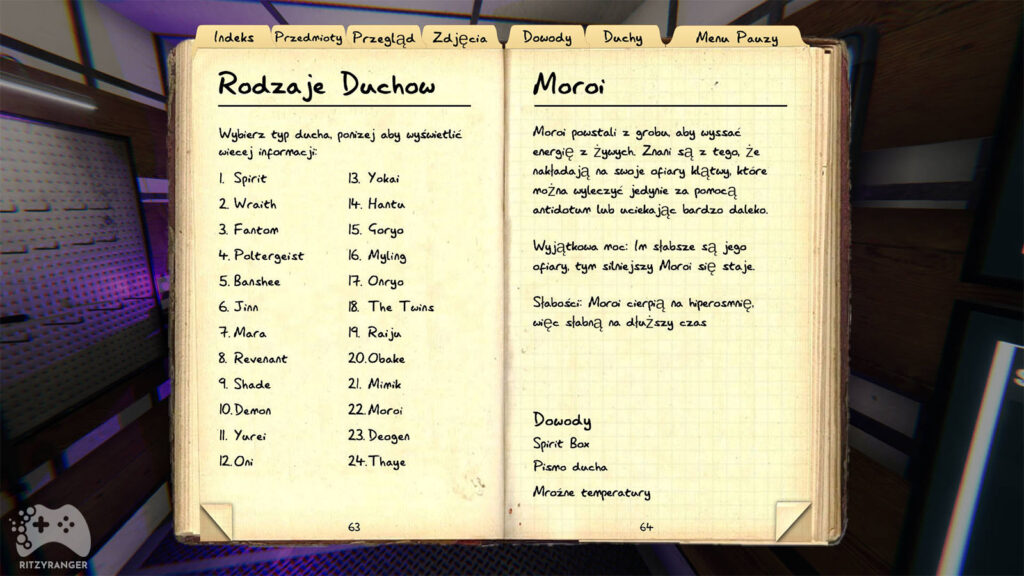 Indeks
Przedmioty
Przegląd
Zdjęcia
Dowody
Duchy
Menu Pauzy
Rodzaje Duchow
Wybierz typ ducha, ponizej aby wyświetlić
wiecej informacji:
1. Spirit
2. Wraith
3. Fantom
4. Poltergeist
5. Banshee
6. Jinn
7. Mara
8. Revenant
9. Shade
10. Demon
11. Yurei
12. Oni
13. Yokai
14. Hantu
15. Goryo
16. Myling
17. Onryo
18. The Twins
19. Raiju
20. Obake
21. Mimik
22. Moroi
23. Deogen
24. Thaye
63
Moroi
Moroi powstali z grobu, aby wyssać
energię z żywych. Znani są z tego, że
nakładają na swoje ofiary klątwy, które
można wyleczyć jedynie za pomocą
antidotum lub uciekając bardzo daleko.
Wyjątkowa moc: Im słabsze są jego
ofiary, tym silniejszy Moroi się staje.
Słabości: Moroi cierpią na hiperosmię,
więc słabną na dłuższy czas
Dowody
Spirit Box
Pismo ducha
Mroźne temperatury
64
RITZYRANGER